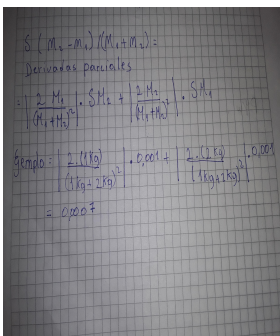 δ (M₂-M₁)/(M₁+M₂)=
Derivadas parciales
=|2 M₁/(M₁+M₂)²|·δM₂+|2 M₂/(M₁+M₂)²|·δM₁
Ejemplo=|2·(1Kg)/(1Kg+2Kg)²|·0,001+|2·(2Kg)/(1Kg+2Kg)²|·0,001
= 0,0007